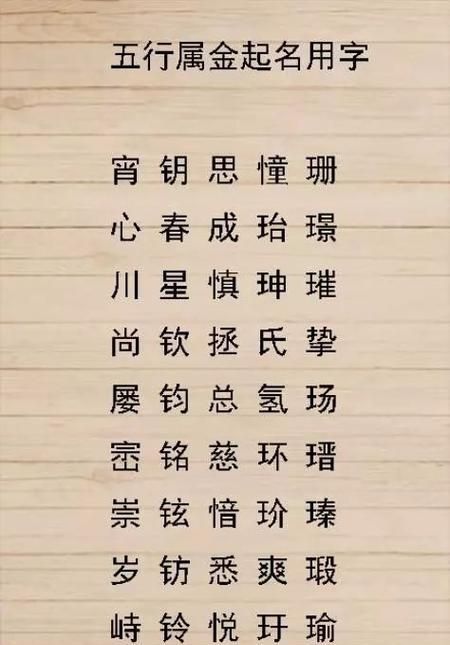 五行属金起名用字
宵 钥 思 憧 珊
心 春 成 珆 璟
川 星 慎 珅 璀
尚 钦 拯 氏 挚
屡 钧 总 氢 玚
崈 铭 慈 环 瑨
崇 铉 愔 玠 瑧
岁 钫 悉 爽 瑕
峙 铃 悦 玗 瑜